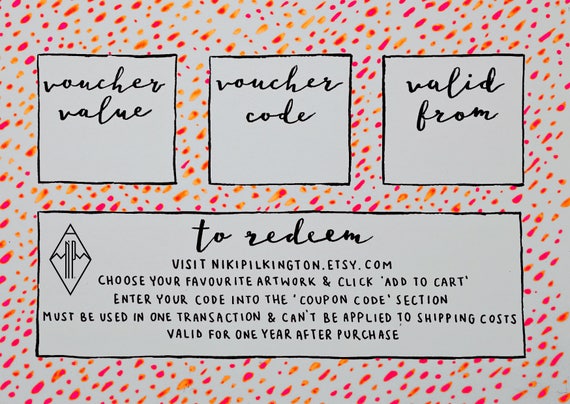 voucher
value
voucher
code
valid
from
to redeem
VISIT NIKIPILKINGTON.ETSY.COM
CHOOSE YOUR FAVOURITE ARTWORK & CLICK 'ADD TO CART'
ENTER YOUR CODE INTO THE 'COUPON CODE' SECTION
MUST BE USED IN ONE TRANSACTION & CAN'T BE APPLIED TO SHIPPING COSTS
VALID FOR ONE YEAR AFTER PURCHASE